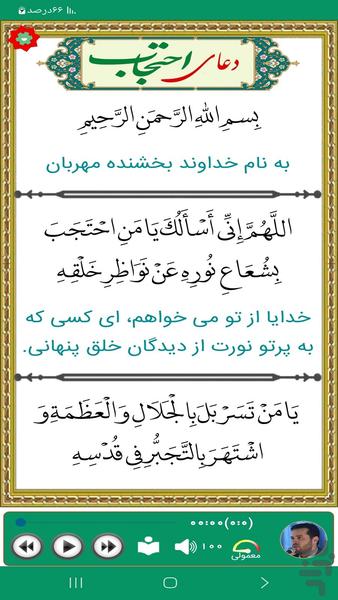 ۶۶درصد
دعای احتجاب
بِسمِ اللهِ الرَّحمَنِ الرَّحِیمِ
به نام خداوند بخشنده مهربان
اللَّهُمَّ إِنِّی أَسْأَلُكَ یَا مَنِ احْتَجَبَ
بِشُعَاعِ نُورِهِ عَنْ نَوَاظِرِ خَلْقِهِ
خدایا از تو می خواهم، ای کسی که
به پرتو نورت از دیدگان خلق پنهانی.
یَا مَنْ تَسَرْبَلَ بِالْجَلَالِ وَ الْعَظَمَةِ وَ
اشْتَهَرَ بِالتَّجَبُّرِ فِی قُدْسِهِ
۰۰:۰۰(۰:۰)
۱۰۰
معمولی